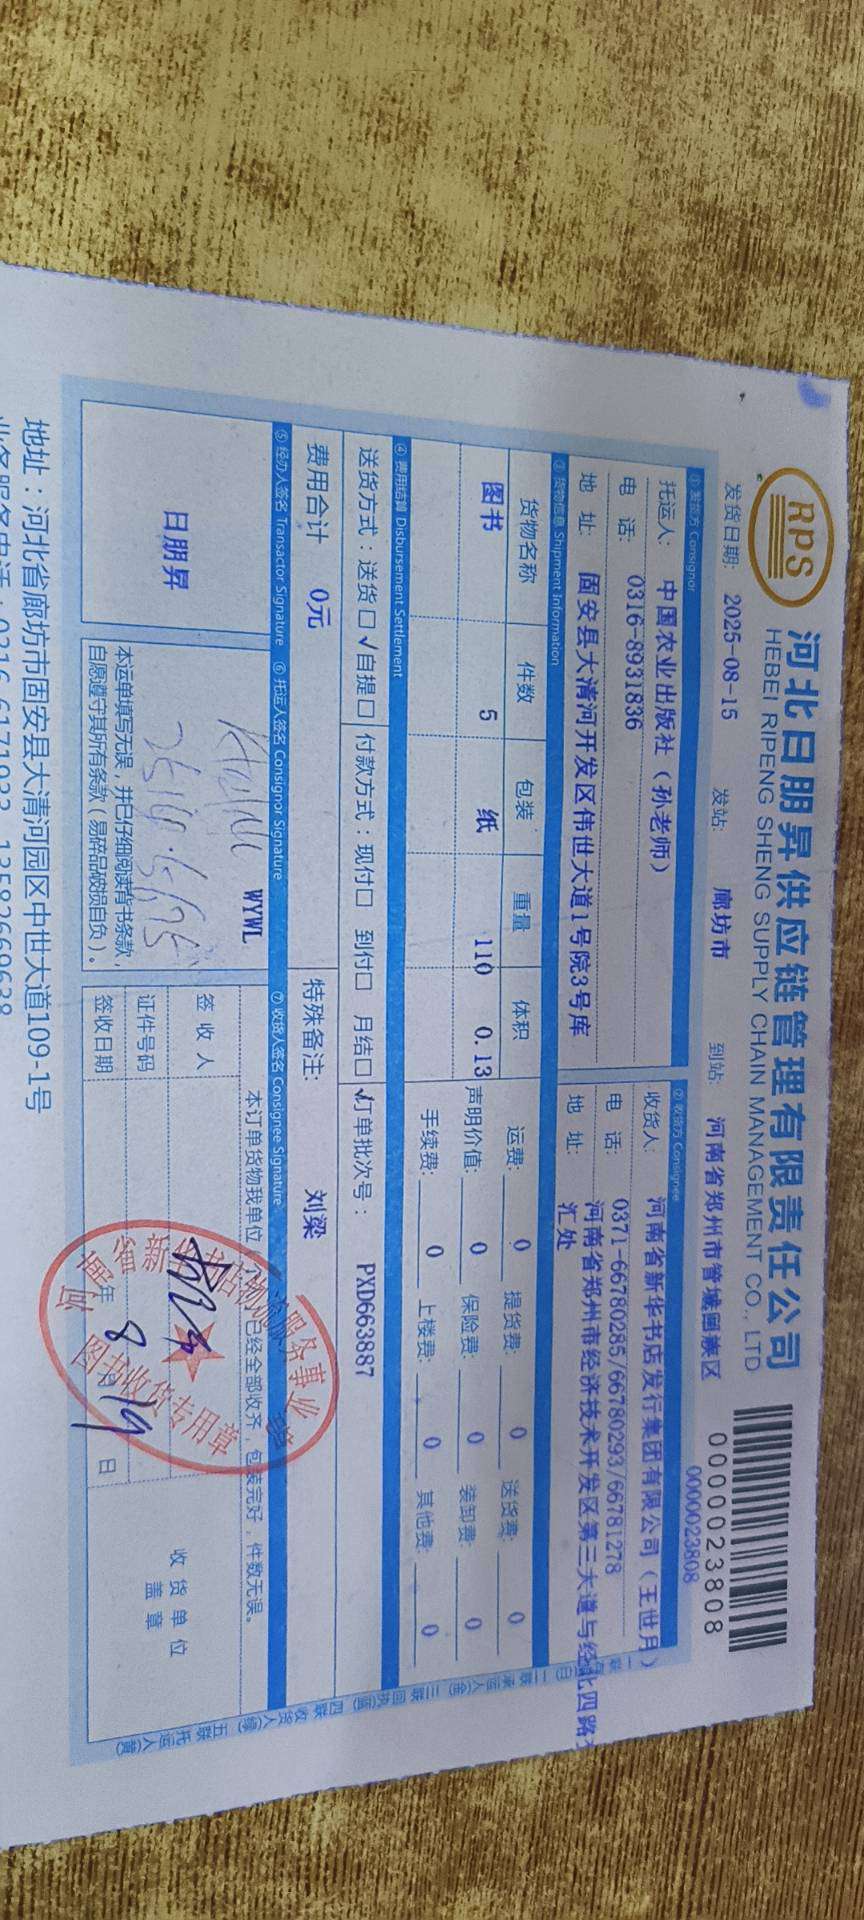 RPS
河北日朋昇供应链管理有限责任公司
HEBEI RIPENG SHENG SUPPLY CHAIN MANAGEMENT CO., LTD
0000023808
0000023808
发货日期: 2025-08-15 发站: 廊坊市 到站: 河南省郑州市管城回族区
① 发货方 Consignor ② 收货方 Consignee
托运人: 中国农业出版社（孙老师） 收货人: 河南省新华书店发行集团有限公司（王世月）
电 话: 0316-8931836 电 话: 0371-66780285/66780293/66781278
地 址: 固安县大清河开发区伟世大道1号院3号库 地 址: 河南省郑州市经济技术开发区第三大道与经北四路
汇处
③ 货物信息 Shipment Information
货物名称 件数 包装 重量 体积 运费: 0 提货费: 0 送货费: 0
图书 5 纸 110 0.13 声明价值: 0 保险费: 0 装卸费: 0
手续费: 0 上楼费: 0 其他费: 0
④ 费用结算 Disbursement Settlement
送货方式：送货□ √自提□ 付款方式：现付□ 到付□ 月结□ √订单批次号： PXD663887
费用合计 0元 特殊备注: 刘梁
⑤ 经办人签名 Transactor Signature ⑥ 托运人签名 Consignor Signature ⑦ 收货人签名 Consignee Signature
日朋昇
WYWL
本运单填写无误，并已仔细阅读背书条款，
自愿遵守其所有条款（易碎品破损自负）。
本订单货物我单位 已经全部收齐，包装完好，件数无误。
签 收 人
证件号码
签收日期 年 8 月 19 日
收 货 单 位
盖 章
河南省新华书店物流服务事业部
图书收货专用章
二联承运人(金) 三联回执(蓝) 四联收货人(绿) 五联托运人(黄)
地址：河北省廊坊市固安县大清河园区中世大道109-1号
业务服务电话：0316-6171933 13582669638